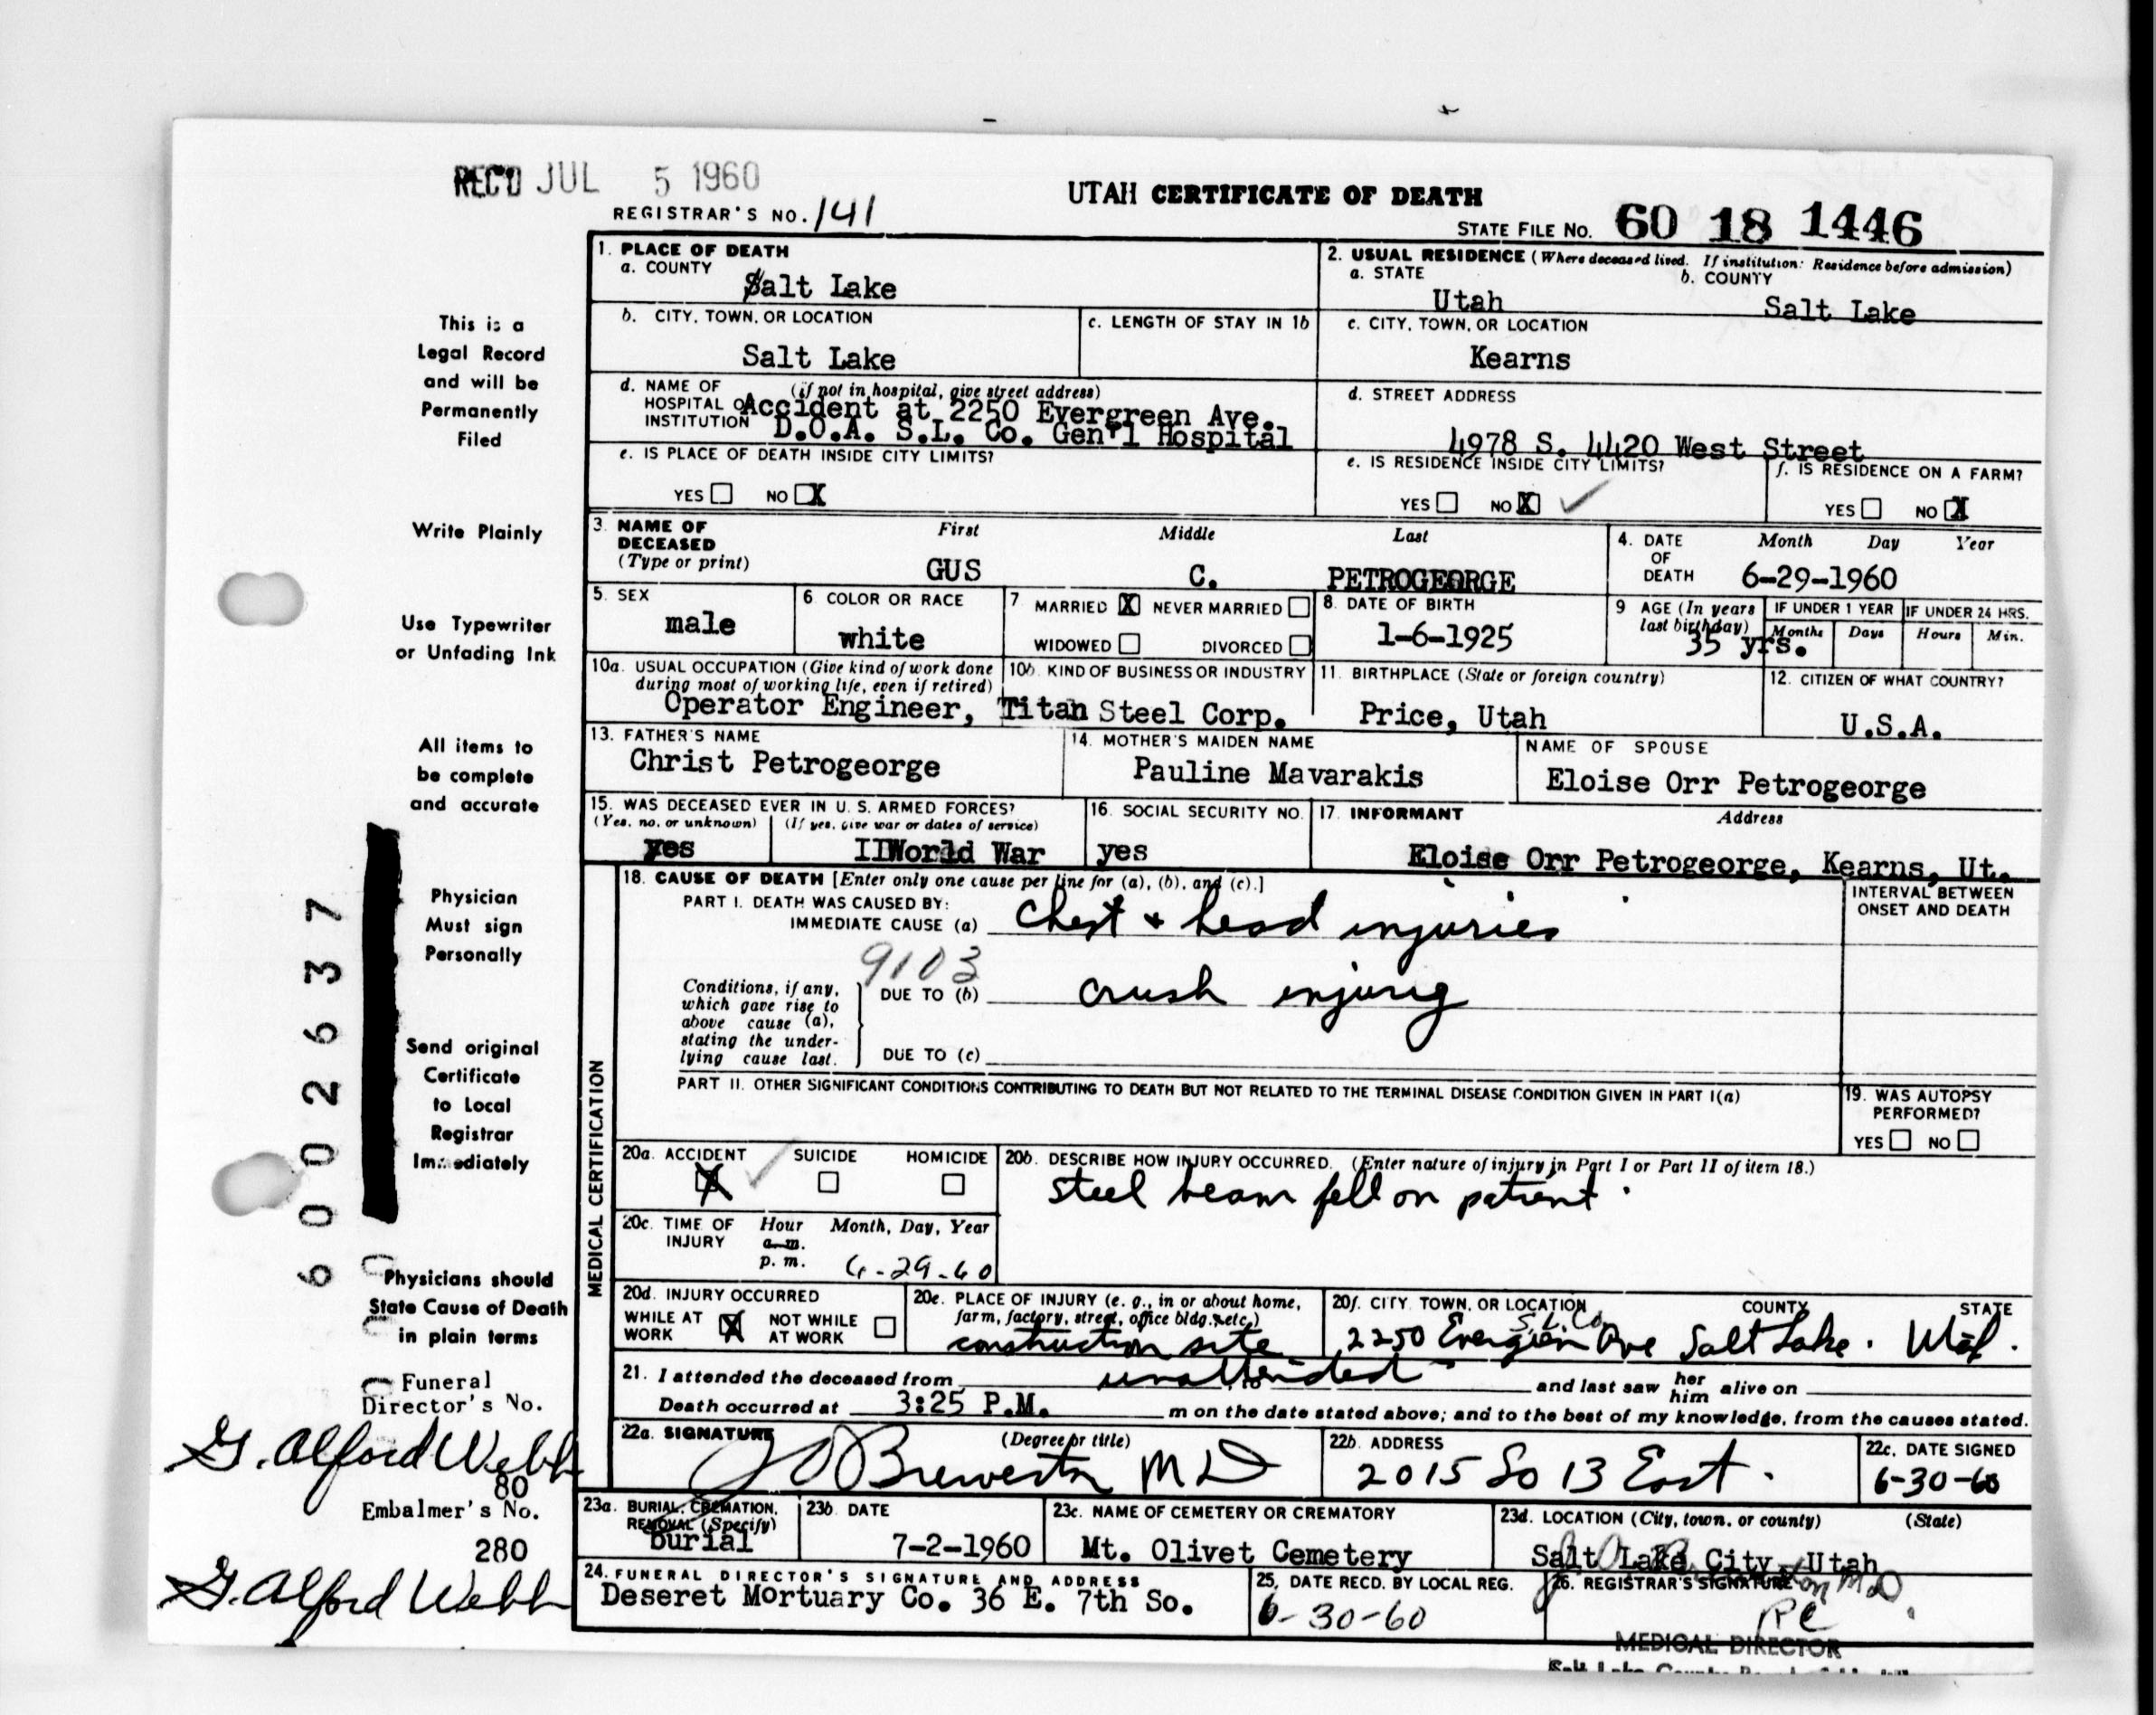 REC'D JUL 5 1960
UTAH CERTIFICATE OF DEATH
REGISTRAR'S NO. 141
STATE FILE No. 60 18 1446
1. PLACE OF DEATH
a. COUNTY
Salt Lake
2. USUAL RESIDENCE (Where deceased lived. If institution: Residence before admission)
a. STATE b. COUNTY
Utah Salt Lake
b. CITY, TOWN, OR LOCATION
Salt Lake
c. LENGTH OF STAY IN 1b
c. CITY, TOWN, OR LOCATION
Kearns
d. NAME OF HOSPITAL OR INSTITUTION (if not in hospital, give street address)
Accident at 2250 Evergreen Ave.
D.O.A. S.L. Co. Gen'l Hospital
d. STREET ADDRESS
4978 S. 4420 West Street
e. IS PLACE OF DEATH INSIDE CITY LIMITS?
YES NO X
e. IS RESIDENCE INSIDE CITY LIMITS?
YES NO X
f. IS RESIDENCE ON A FARM?
YES NO X
3. NAME OF DECEASED (Type or print)
First Middle Last
GUS C. PETROGEORGE
4. DATE OF DEATH Month Day Year
6-29-1960
5. SEX
male
6. COLOR OR RACE
white
7. MARRIED X NEVER MARRIED
WIDOWED DIVORCED
8. DATE OF BIRTH
1-6-1925
9 AGE (In years last birthday)
35 yrs.
IF UNDER 1 YEAR IF UNDER 24 HRS.
Months Days Hours Min.
10a. USUAL OCCUPATION (Give kind of work done during most of working life, even if retired)
10b. KIND OF BUSINESS OR INDUSTRY
Operator Engineer, Titan Steel Corp.
11. BIRTHPLACE (State or foreign country)
Price, Utah
12. CITIZEN OF WHAT COUNTRY?
U.S.A.
13. FATHER'S NAME
Christ Petrogeorge
14. MOTHER'S MAIDEN NAME
Pauline Mavarakis
NAME OF SPOUSE
Eloise Orr Petrogeorge
15. WAS DECEASED EVER IN U. S. ARMED FORCES?
(Yes, no, or unknown) (If yes, give war or dates of service)
yes IIWorld War
16. SOCIAL SECURITY NO.
yes
17. INFORMANT Address
Eloise Orr Petrogeorge, Kearns, Ut.
MEDICAL CERTIFICATION
18. CAUSE OF DEATH [Enter only one cause per line for (a), (b), and (c).]
PART I. DEATH WAS CAUSED BY:
IMMEDIATE CAUSE (a) Chest & head injuries
INTERVAL BETWEEN ONSET AND DEATH
9103
Conditions, if any, which gave rise to above cause (a), stating the underlying cause last.
DUE TO (b) crush injury
DUE TO (c)
PART II. OTHER SIGNIFICANT CONDITIONS CONTRIBUTING TO DEATH BUT NOT RELATED TO THE TERMINAL DISEASE CONDITION GIVEN IN PART I(a)
19. WAS AUTOPSY PERFORMED?
YES NO
20a. ACCIDENT SUICIDE HOMICIDE
X
20b. DESCRIBE HOW INJURY OCCURRED. (Enter nature of injury in Part I or Part II of item 18.)
steel beam fell on patient.
20c. TIME OF INJURY Hour Month, Day, Year
a.m.
p. m. 6-29-60
20d. INJURY OCCURRED
WHILE AT WORK X NOT WHILE AT WORK
20e. PLACE OF INJURY (e. g., in or about home, farm, factory, street, office bldg., etc.)
construction site
20f. CITY, TOWN, OR LOCATION COUNTY STATE
S.L.Co.
2250 Evergreen Ave Salt Lake. Utah.
21. I attended the deceased from unattended, to and last saw her him alive on
Death occurred at 3:25 P.M. m on the date stated above; and to the best of my knowledge, from the causes stated.
22a. SIGNATURE (Degree or title)
Brewerton MD
22b. ADDRESS
2015 So 13 East.
22c. DATE SIGNED
6-30-60
23a. BURIAL, CREMATION, REMOVAL (Specify)
burial
23b. DATE
7-2-1960
23c. NAME OF CEMETERY OR CREMATORY
Mt. Olivet Cemetery
23d. LOCATION (City, town, or county) (State)
Salt Lake City, Utah
24. FUNERAL DIRECTOR'S SIGNATURE AND ADDRESS
Deseret Mortuary Co. 36 E. 7th So.
25. DATE RECD. BY LOCAL REG.
6-30-60
26. REGISTRAR'S SIGNATURE
MEDICAL DIRECTOR
This is a
Legal Record
and will be
Permanently
Filed
Write Plainly
Use Typewriter
or Unfading Ink
All items to
be complete
and accurate
Physician
Must sign
Personally
Send original
Certificate
to Local
Registrar
Immediately
Physicians should
State Cause of Death
in plain terms
Funeral
Director's No.
G. Alford Webb
80
Embalmer's No.
280
G. Alford Webb
6002637